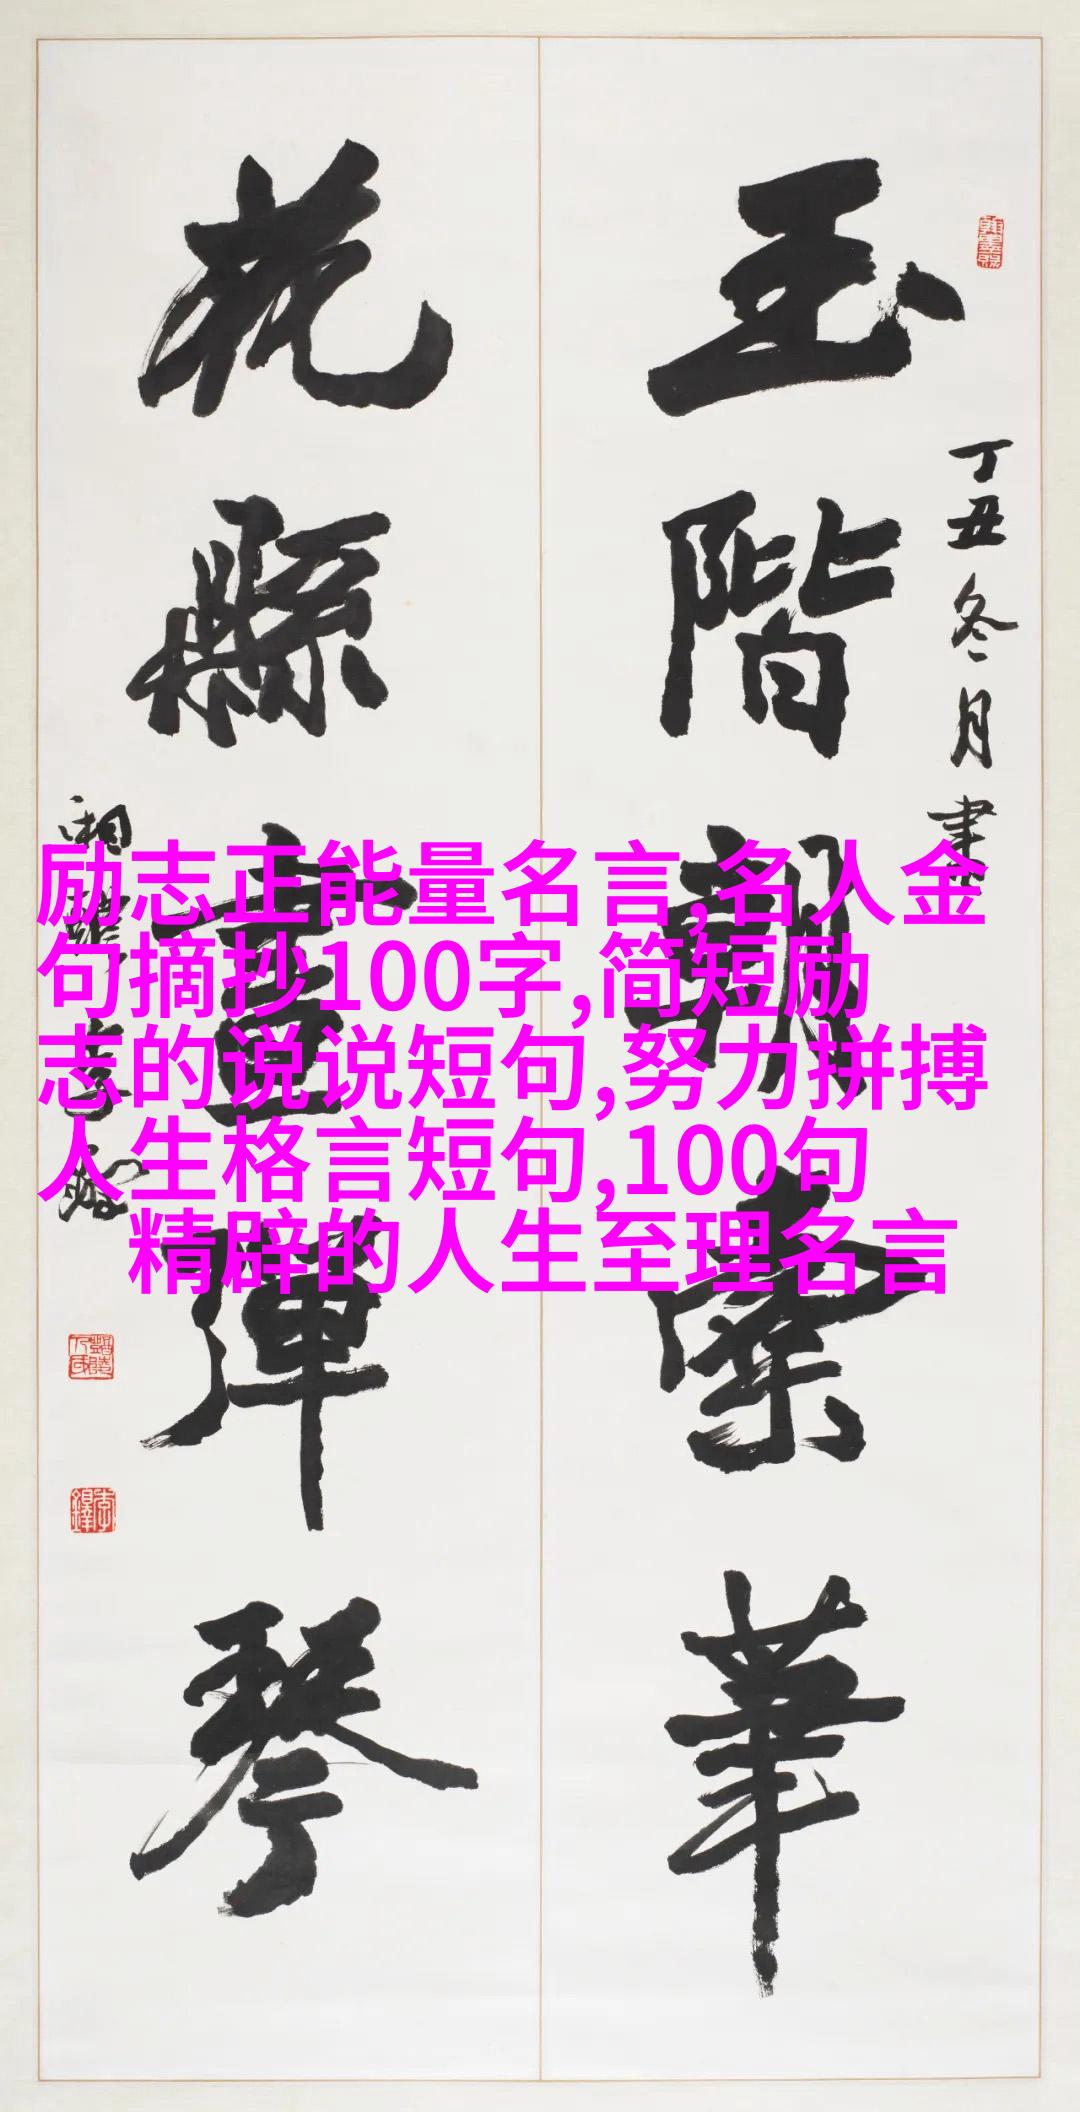 丁丑冬月書
玉階朝華
花縣彈琴
李鐸
励志正能量名言,名人金
句摘抄100字,简短励
志的说说短句,努力拼搏
人生格言短句,100句
精辟的人生至理名言